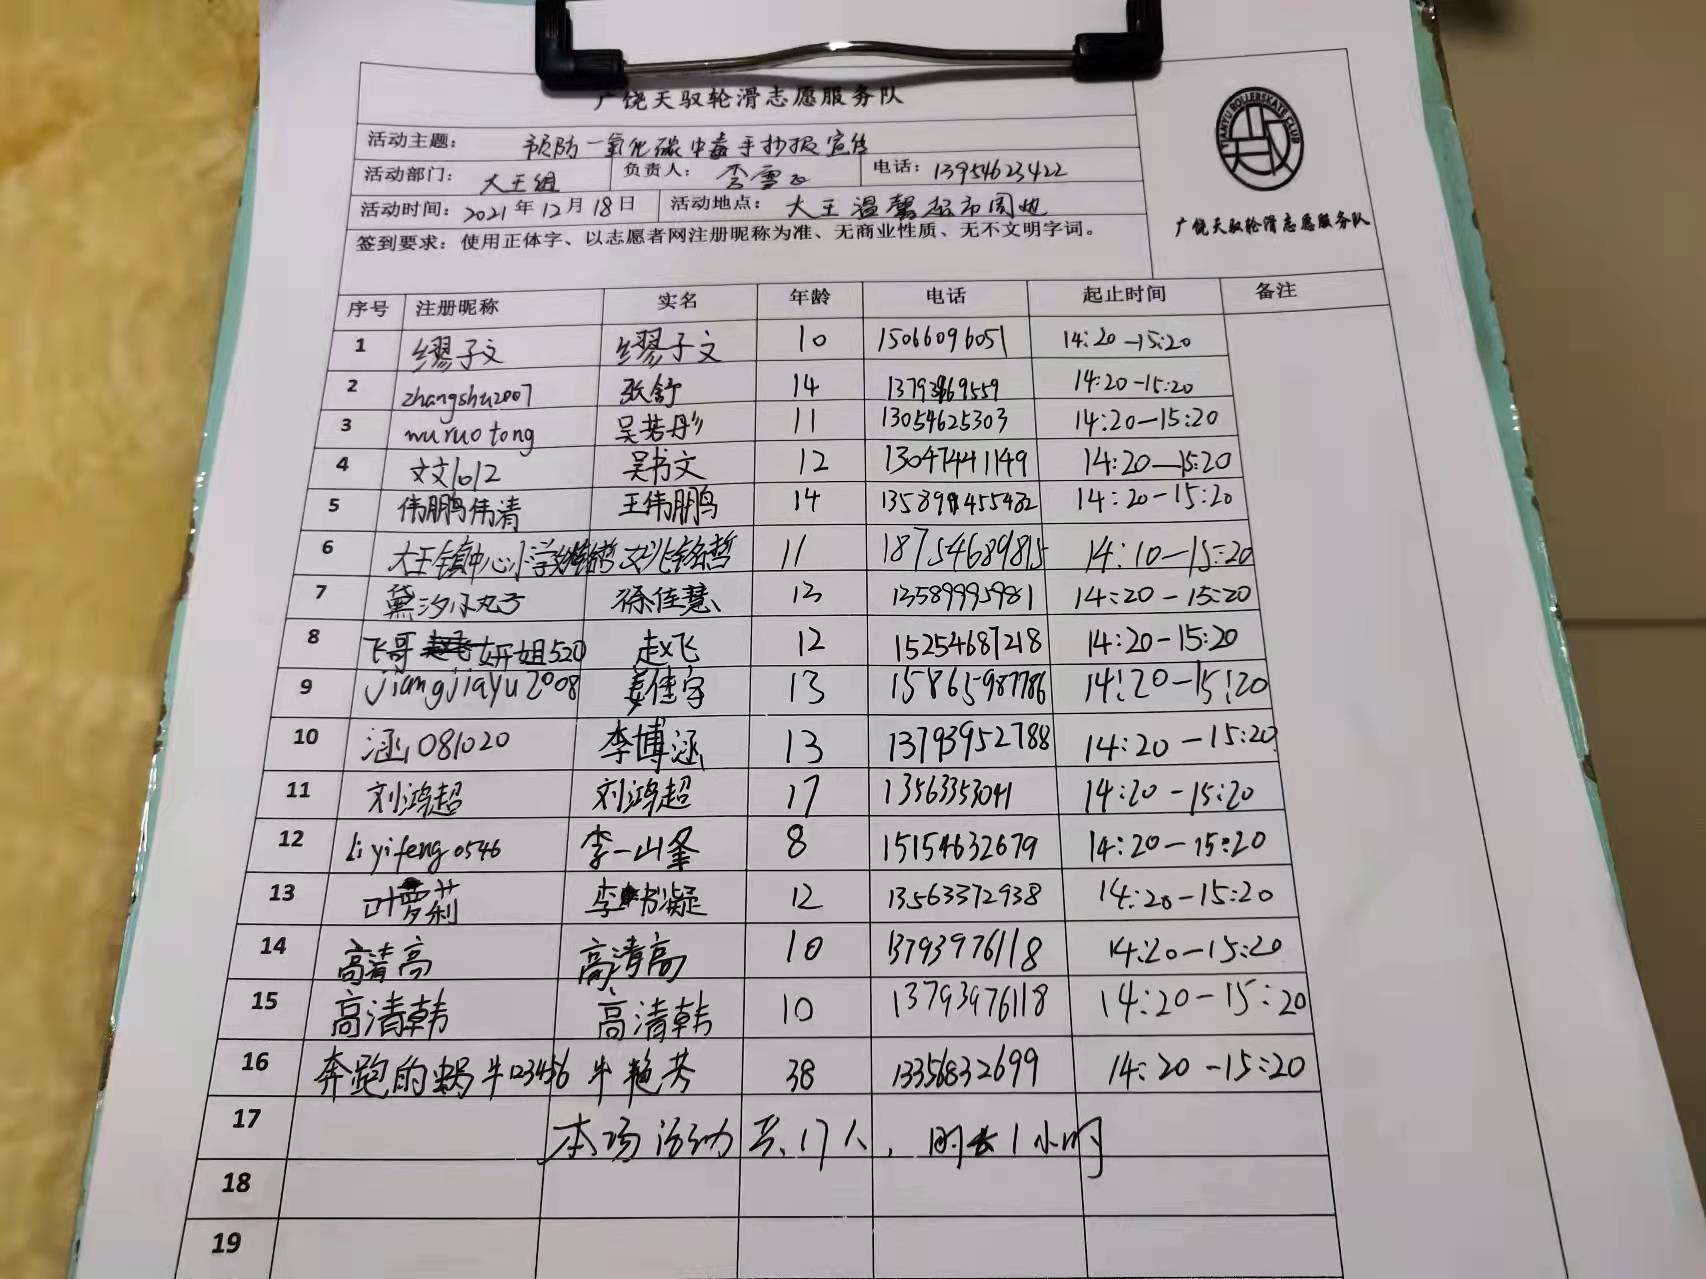 广饶天驭轮滑志愿服务队
TIANYU ROLLERSKATE CLUB
广饶天驭轮滑志愿服务队
活动主题: 预防一氧化碳中毒手抄报宣传
活动部门: 大王组 负责人: 李雪 电话: 13954623422
活动时间: 2021年12月18日 活动地点: 大王温馨超市周边
签到要求: 使用正体字、以志愿者网注册昵称为准、无商业性质、无不文明字词。
序号 注册昵称 实名 年龄 电话 起止时间 备注
1 缪子文 缪子文 10 15066096051 14:20-15:20
2 zhangshu2007 张舒 14 14:20-15:20
3 wuruotong 吴若彤 11 13054625303 14:20-15:20
4 文文1012 吴书文 12 13047441149 14:20-15:20
5 伟鹏伟清 王伟鹏 14 14:20-15:20
6 大王镇中心小学 11 18754689815 14:10-15:20
7 黛汐小丸子 徐佳慧 13 13589995981 14:20-15:20
8 飞哥妍姐520 赵飞 12 15254687218 14:20-15:20
9 jiangjiayu2008 姜佳宇 13 15865987786 14:20-15:20
10 涵081020 李博涵 13 13793952788 14:20-15:20
11 刘鸿超 刘鸿超 17 13563353041 14:20-15:20
12 liyifeng0546 李一山峰 8 15154632679 14:20-15:20
13 叶萝莉 李书凝 12 13563372938 14:20-15:20
14 高清高 高清高 10 13793976118 14:20-15:20
15 高清韩 高清韩 10 13793976118 14:20-15:20
16 奔跑的蜗牛123456 牛艳芳 38 13356832699 14:20-15:20
17 本场活动共17人,时长1小时
18
19